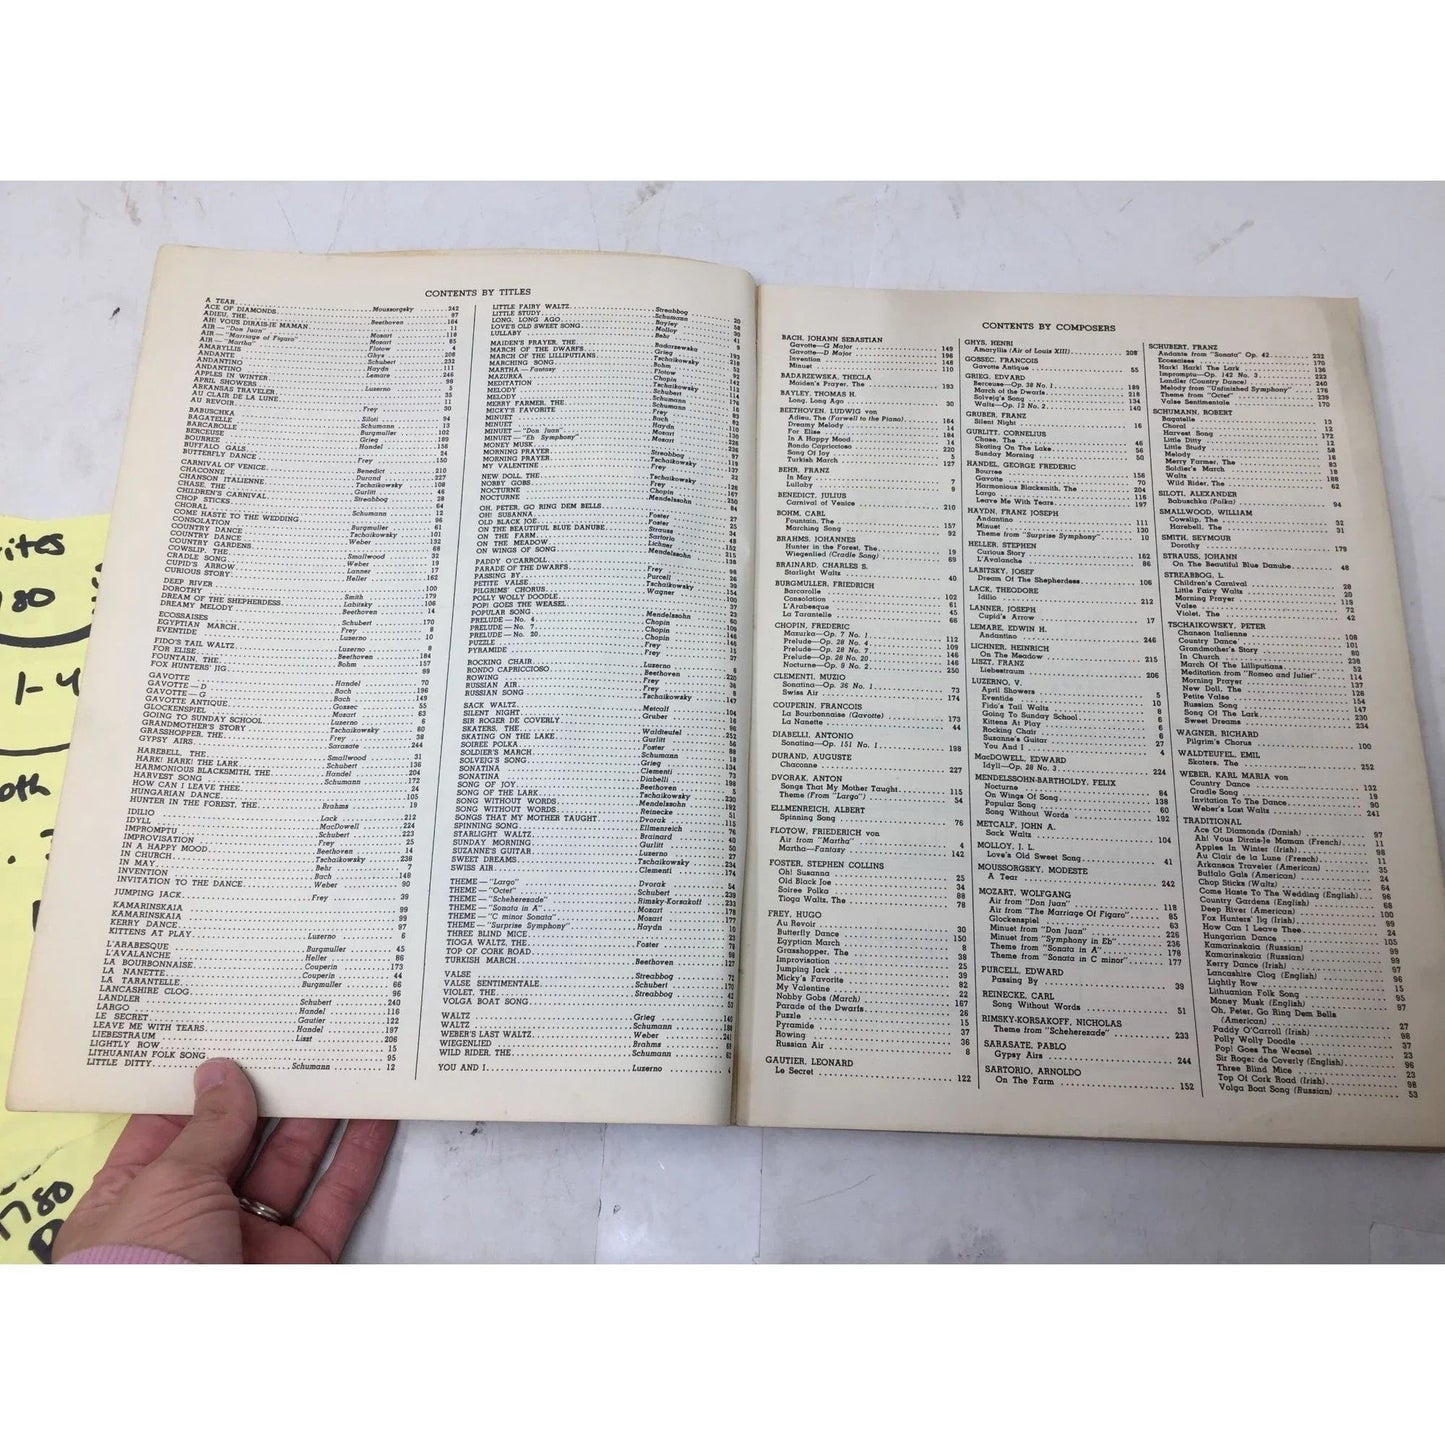 CONTENTS BY TITLES
A TEAR Moussorgsky 242
ACE OF DIAMONDS 97
ADIEU, THE Beethoven 184
AH! VOUS DIRAIS-JE MAMAN 11
AIR—"Don Juan" Mozart 118
AIR—"Marriage of Figaro" Mozart 85
AIR—"Martha" Flotow 4
AMARYLLIS Ghys 208
ANDANTE Schubert 232
ANDANTINO Haydn 111
ANDANTINO Lemare 246
APPLES IN WINTER 98
APRIL SHOWERS Luzerno 5
ARKANSAS TRAVELER 35
AU CLAIR DE LA LUNE 11
AU REVOIR Frey 30
BABUSCHKA Siloti 94
BAGATELLE Schumann 13
BARCAROLLE Burgmuller 102
BERCEUSE Grieg 189
BOURREE Handel 156
BUFFALO GALS 24
BUTTERFLY DANCE Frey 150
CARNIVAL OF VENICE Benedict 210
CHACONNE Durand 227
CHANSON ITALIENNE Tschaikowsky 108
CHASE, THE Gurlitt 46
CHILDREN'S CARNIVAL Streabbog 28
CHOP STICKS 64
CHORAL Schumann 12
COME HASTE TO THE WEDDING 96
CONSOLATION Burgmuller 61
COUNTRY DANCE Tschaikowsky 101
COUNTRY DANCE Weber 132
COUNTRY GARDENS 68
COWSLIP, THE Smallwood 32
CRADLE SONG Weber 19
CUPID'S ARROW Lanner 17
CURIOUS STORY Heller 162
DEEP RIVER 100
DOROTHY Smith 179
DREAM OF THE SHEPHERDESS Labitsky 106
DREAMY MELODY Beethoven 14
ECOSSAISES Schubert 170
EGYPTIAN MARCH Frey 8
EVENTIDE Luzerno 10
FIDO'S TAIL WALTZ Luzerno 8
FOR ELISE Beethoven 184
FOUNTAIN, THE Bohm 157
FOX HUNTERS' JIG 99
GAVOTTE Handel 70
GAVOTTE—D Bach 196
GAVOTTE—G Bach 149
GAVOTTE ANTIQUE Gossec 55
GLOCKENSPIEL Mozart 63
GOING TO SUNDAY SCHOOL Luzerno 6
GRANDMOTHER'S STORY Tschaikowsky 80
GRASSHOPPER, THE Frey 38
GYPSY AIRS Sarasate 244
HAREBELL, THE Smallwood 31
HARK! HARK! THE LARK Schubert 136
HARMONIOUS BLACKSMITH, THE Handel 204
HARVEST SONG Schumann 172
HOW CAN I LEAVE THEE 24
HUNGARIAN DANCE 105
HUNTER IN THE FOREST, THE Brahms 19
IDILIO Lack 212
IDYLL MacDowell 224
IMPROMPTU Schubert 223
IMPROVISATION Frey 25
IN A HAPPY MOOD Beethoven 14
IN CHURCH Tschaikowsky 238
IN MAY Behr 7
INVENTION Bach 148
INVITATION TO THE DANCE Weber 90
JUMPING JACK Frey 39
KAMARINSKAIA 99
KAMARINSKAIA 99
KERRY DANCE 97
KITTENS AT PLAY Luzerno 6
L'ARABESQUE Burgmuller 45
L'AVALANCHE Heller 86
LA BOURBONNAISE Couperin 173
LA NANETTE Couperin 44
LA TARANTELLE Burgmuller 66
LANCASHIRE CLOG 96
LANDLER Schubert 240
LARGO Handel 116
LE SECRET Gautier 122
LEAVE ME WITH TEARS Handel 197
LIEBESTRAUM Liszt 206
LIGHTLY ROW 15
LITHUANIAN FOLK SONG 95
LITTLE DITTY Schumann 12
LITTLE FAIRY WALTZ Streabbog 20
LITTLE STUDY Schumann 58
LONG, LONG AGO Bayley 30
LOVE'S OLD SWEET SONG Molloy 41
LULLABY Behr 9
MAIDEN'S PRAYER, THE Badarzewska 193
MARCH OF THE DWARFS Grieg 218
MARCH OF THE LILLIPUTIANS Tschaikowsky 52
MARCHING SONG Bohm 92
MARTHA—Fantasy Flotow 142
MAZURKA Chopin 112
MEDITATION Tschaikowsky 114
MELODY Schubert 176
MELODY Schumann 16
MERRY FARMER, THE Schumann 83
MICKY'S FAVORITE Frey 82
MINUET Bach 110
MINUET Haydn 130
MINUET—"Don Juan" Mozart 226
MINUET—"Eb Symphony" Mozart 236
MONEY MUSK 97
MORNING PRAYER Streabbog 119
MORNING PRAYER Tschaikowsky 137
MY VALENTINE Frey 22
NEW DOLL, THE Tschaikowsky 126
NOBBY GOBS Frey 167
NOCTURNE Chopin 250
NOCTURNE Mendelssohn 84
OH, PETER, GO RING DEM BELLS 27
OH! SUSANNA Foster 25
OLD BLACK JOE Foster 34
ON THE BEAUTIFUL BLUE DANUBE Strauss 48
ON THE FARM Sartorio 152
ON THE MEADOW Lichner 215
ON WINGS OF SONG Mendelssohn 138
PADDY O'CARROLL 98
PARADE OF THE DWARFS Frey 26
PASSING BY Purcell 39
PETITE VALSE Tschaikowsky 154
PILGRIMS' CHORUS Wagner 100
POLLY WOLLY DOODLE 37
POP! GOES THE WEASEL 23
POPULAR SONG Mendelssohn 60
PRELUDE—No. 4 Chopin 109
PRELUDE—No. 7 Chopin 146
PRELUDE—No. 20 Chopin 146
PUZZLE Frey 15
PYRAMIDE Frey 37
ROCKING CHAIR Luzerno 6
RONDO CAPRICCIOSO Beethoven 220
ROWING Frey 36
RUSSIAN AIR Frey 8
RUSSIAN SONG Tschaikowsky 147
SACK WALTZ Metcalf 104
SILENT NIGHT Gruber 16
SIR ROGER DE COVERLY 96
SKATERS, THE Waldteufel 252
SKATING ON THE LAKE Gurlitt 56
SOIREE POLKA Foster 88
SOLDIER'S MARCH Schumann 18
SOLVEJG'S SONG Grieg 134
SONATINA Clementi 73
SONATINA Diabelli 198
SONG OF JOY Beethoven 5
SONG OF THE LARK Tschaikowsky 230
SONG WITHOUT WORDS Mendelssohn 192
SONG WITHOUT WORDS Reinecke 51
SONGS THAT MY MOTHER TAUGHT Dvorak 115
SPINNING SONG Ellmenreich 76
STARLIGHT WALTZ Brainard 40
SUNDAY MORNING Gurlitt 50
SUZANNE'S GUITAR Luzerno 27
SWEET DREAMS Tschaikowsky 234
SWISS AIR Clementi 174
THEME—"Largo" Dvorak 54
THEME—"Octet" Schubert 239
THEME—"Scheherezade" Rimsky-Korsakoff 233
THEME—"Sonata in A" Mozart 178
THEME—"C minor Sonata" Mozart 177
THEME—"Surprise Symphony" Haydn 10
THREE BLIND MICE 23
TIOGA WALTZ, THE Foster 78
TOP OF CORK ROAD 98
TURKISH MARCH Beethoven 127
VALSE Streabbog 72
VALSE SENTIMENTALE Schubert 170
VIOLET, THE Streabbog 42
VOLGA BOAT SONG 53
WALTZ Grieg 140
WALTZ Schumann 188
WEBER'S LAST WALTZ Weber 241
WIEGENLIED Brahms 69
WILD RIDER, THE Schumann 62
YOU AND I Luzerno 4
CONTENTS BY COMPOSERS
BACH, JOHANN SEBASTIAN
Gavotte—G Major 149
Gavotte—D Major 196
Invention 148
Minuet 110
BADARZEWSKA, THECLA
Maiden's Prayer, The 193
BAYLEY, THOMAS H.
Long, Long Ago 30
BEETHOVEN, LUDWIG von
Adieu, The (Farwell to the Piano) 184
Dreamy Melody 14
For Elise 184
In A Happy Mood 14
Rondo Capriccioso 220
Song Of Joy 5
Turkish March 127
BEHR, FRANZ
In May 7
Lullaby 9
BENEDICT, JULIUS
Carnival of Venice 210
BOHM, CARL
Fountain, The 157
Marching Song 92
BRAHMS, JOHANNES
Hunter in the Forest, The 19
Wiegenlied (Cradle Song) 69
BRAINARD, CHARLES S.
Starlight Waltz 40
BURGMULLER, FRIEDRICH
Barcarolle 102
Consolation 61
L'Arabesque 45
La Tarantelle 66
CHOPIN, FREDERIC
Mazurka—Op. 7 No. 1 112
Prelude—Op. 28 No. 4 109
Prelude—Op. 28 No. 7 146
Prelude—Op. 28 No. 20 146
Nocturne—Op. 9 No. 2 250
CLEMENTI, MUZIO
Sonatina—Op. 36 No. 1 73
Swiss Air 174
COUPERIN, FRANCOIS
La Bourbonnaise (Gavotte) 173
La Nanette 44
DIABELLI, ANTONIO
Sonatina—Op. 151 No. 1 198
DURAND, AUGUSTE
Chaconne 227
DVORAK, ANTON
Songs That My Mother Taught 115
Theme (From "Largo") 54
ELLMENREICH, ALBERT
Spinning Song 76
FLOTOW, FRIEDERICH von
Air from "Martha" 4
Martha—Fantasy 142
FOSTER, STEPHEN COLLINS
Oh! Susanna 25
Old Black Joe 34
Soiree Polka 88
Tioga Waltz, The 78
FREY, HUGO
Au Revoir 30
Butterfly Dance 150
Egyptian March 8
Grasshopper, The 38
Improvisation 25
Jumping Jack 39
Micky's Favorite 82
My Valentine 22
Nobby Gobs (March) 167
Parade of the Dwarfs 26
Puzzle 15
Pyramide 37
Rowing 36
Russian Air 8
GAUTIER, LEONARD
Le Secret 122
GHYS, HENRI
Amaryllis (Air of Louis XIII) 208
GOSSEC, FRANCOIS
Gavotte Antique 55
GRIEG, EDVARD
Berceuse—Op. 38 No. 1 189
March of the Dwarfs 218
Solvejg's Song 134
Waltz—Op. 12 No. 2 140
GRUBER, FRANZ
Silent Night 16
GURLITT, CORNELIUS
Chase, The 46
Skating On The Lake 56
Sunday Morning 50
HANDEL, GEORGE FREDERIC
Bourree 156
Gavotte 70
Harmonious Blacksmith, The 204
Largo 116
Leave Me With Tears 197
HAYDN, FRANZ JOSEPH
Andantino 111
Minuet 130
Theme from "Surprise Symphony" 10
HELLER, STEPHEN
Curious Story 162
L'Avalanche 86
LABITSKY, JOSEF
Dream Of The Shepherdess 106
LACK, THEODORE
Idilio 212
LANNER, JOSEPH
Cupid's Arrow 17
LEMARE, EDWIN H.
Andantino 246
LICHNER, HEINRICH
On The Meadow 215
LISZT, FRANZ
Liebestraum 206
LUZERNO, V.
April Showers 5
Eventide 10
Fido's Tail Waltz 8
Going To Sunday School 6
Kittens At Play 6
Rocking Chair 6
Suzanne's Guitar 27
You And I 4
MacDOWELL, EDWARD
Idyll—Op. 28 No. 3 224
MENDELSSOHN-BARTHOLDY, FELIX
Nocturne 84
On Wings Of Song 138
Popular Song 60
Song Without Words 192
METCALF, JOHN A.
Sack Waltz 104
MOLLOY, J. L.
Love's Old Sweet Song 41
MOUSSORGSKY, MODESTE
A Tear 242
MOZART, WOLFGANG
Air from "Don Juan" 118
Air from "The Marriage Of Figaro" 85
Glockenspiel 63
Minuet from "Don Juan" 226
Minuet from "Symphony in Eb" 236
Theme from "Sonata in A" 178
Theme from "Sonata in C minor" 177
PURCELL, EDWARD
Passing By 39
REINECKE, CARL
Song Without Words 51
RIMSKY-KORSAKOFF, NICHOLAS
Theme from "Scheherezade" 233
SARASATE, PABLO
Gypsy Airs 244
SARTORIO, ARNOLDO
On The Farm 152
SCHUBERT, FRANZ
Andante from "Sonata" Op. 42 232
Ecossaises 170
Hark! Hark! The Lark 136
Impromptu—Op. 142 No. 3 223
Landler (Country Dance) 240
Melody from "Unfinished Symphony" 176
Theme from "Octet" 239
Valse Sentimentale 170
SCHUMANN, ROBERT
Bagatelle 13
Choral 12
Harvest Song 172
Little Ditty 12
Little Study 58
Melody 16
Merry Farmer, The 83
Soldier's March 18
Waltz 188
Wild Rider, The 62
SILOTI, ALEXANDER
Babuschka (Polka) 94
SMALLWOOD, WILLIAM
Cowslip, The 32
Harebell, The 31
SMITH, SEYMOUR
Dorothy 179
STRAUSS, JOHANN
On The Beautiful Blue Danube 48
STREABBOG, L.
Children's Carnival 28
Little Fairy Waltz 20
Morning Prayer 119
Valse 72
Violet, The 42
TSCHAIKOWSKY, PETER
Chanson Italienne 108
Country Dance 101
Grandmother's Story 80
In Church 238
March Of The Lilliputians 52
Meditation from "Romeo and Juliet" 114
Morning Prayer 137
New Doll, The 126
Petite Valse 154
Russian Song 147
Song Of The Lark 230
Sweet Dreams 234
WAGNER, RICHARD
Pilgrim's Chorus 100
WALDTEUFEL, EMIL
Skaters, The 252
WEBER, KARL MARIA von
Country Dance 132
Cradle Song 19
Invitation To The Dance 90
Weber's Last Waltz 241
TRADITIONAL
Ace Of Diamonds (Danish) 97
Ah! Vous Dirais-Je Maman (French) 11
Apples In Winter (Irish) 98
Au Clair de la Lune (French) 11
Arkansas Traveler (American) 35
Buffalo Gals (American) 24
Chop Sticks (Waltz) 64
Come Haste To The Wedding (English) 96
Country Gardens (English) 68
Deep River (American) 100
Fox Hunters' Jig (Irish) 99
How Can I Leave Thee 24
Hungarian Dance 105
Kamarinskaia (Russian) 99
Kamarinskaia (Russian) 99
Kerry Dance (Irish) 97
Lancashire Clog (English) 96
Lightly Row 15
Lithuanian Folk Song 95
Money Musk (English) 97
Oh, Peter, Go Ring Dem Bells
(American) 27
Paddy O'Carroll (Irish) 98
Polly Wolly Doodle 37
Pop! Goes The Weasel 23
Sir Roger de Coverly (English) 96
Three Blind Mice 23
Top Of Cork Road (Irish) 98
Volga Boat Song (Russian) 53
1-4
1780